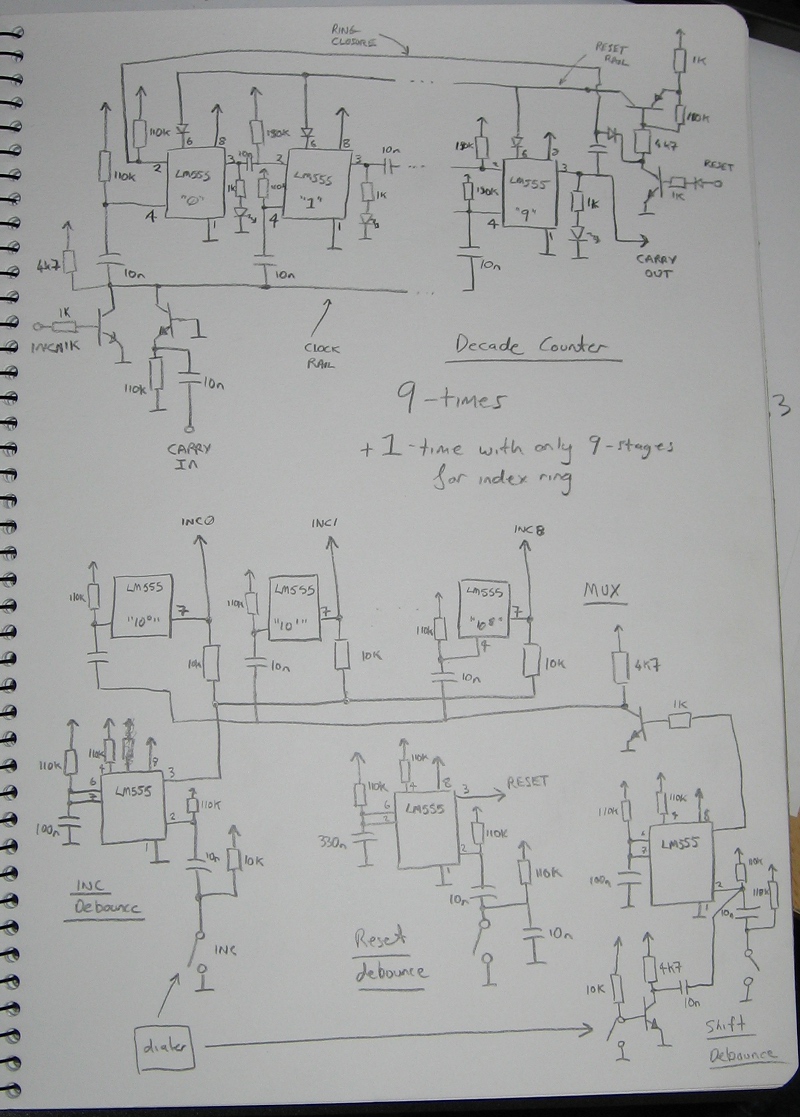 RING
CLOSURE
RESET
RAIL
1K
110K
110K
6
8
LM555
"0"
2
4
3
1
10n
1K
130K
6
8
LM555
"1"
2
4
3
1
10n
1K
130K
130K
6
LM555
"9"
2
4
3
1
1K
4k7
RESET
1K
CARRY
OUT
4k7
10n
10n
10n
1K
CLOCK
RAIL
110K
10n
CARRY
IN
Decade Counter
9-times
+ 1-time with only 9-stages
for index ring
3
INC0
INC1
INC8
MUX
110K
LM555
"10⁰"
7
10K
110K
LM555
"10¹"
7
10n
10K
110K
LM555
"10⁸"
7
4
10n
10K
4K7
1K
110K
110K
4
8
6
7
LM555
3
2
1
100n
110K
10n
10K
INC
INC
Debounce
110K
110K
4
8
6
LM555
3
2
1
330n
RESET
110K
10n
110K
10n
Reset
debounce
110K
110K
8
7
LM555
2
1
100n
110K
110K
10n
10K
4K7
10n
Shift
Debounce
dialer